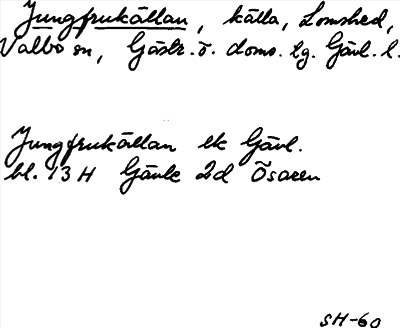 Jungfrukällan, källa, Lomshed,
Valbo sn, Gästr. ö. doms. tg. Gävl. l.
Jungfrukällan ek Gävl.
bl. 13 H Gävle 2d Ösaren
SH-60